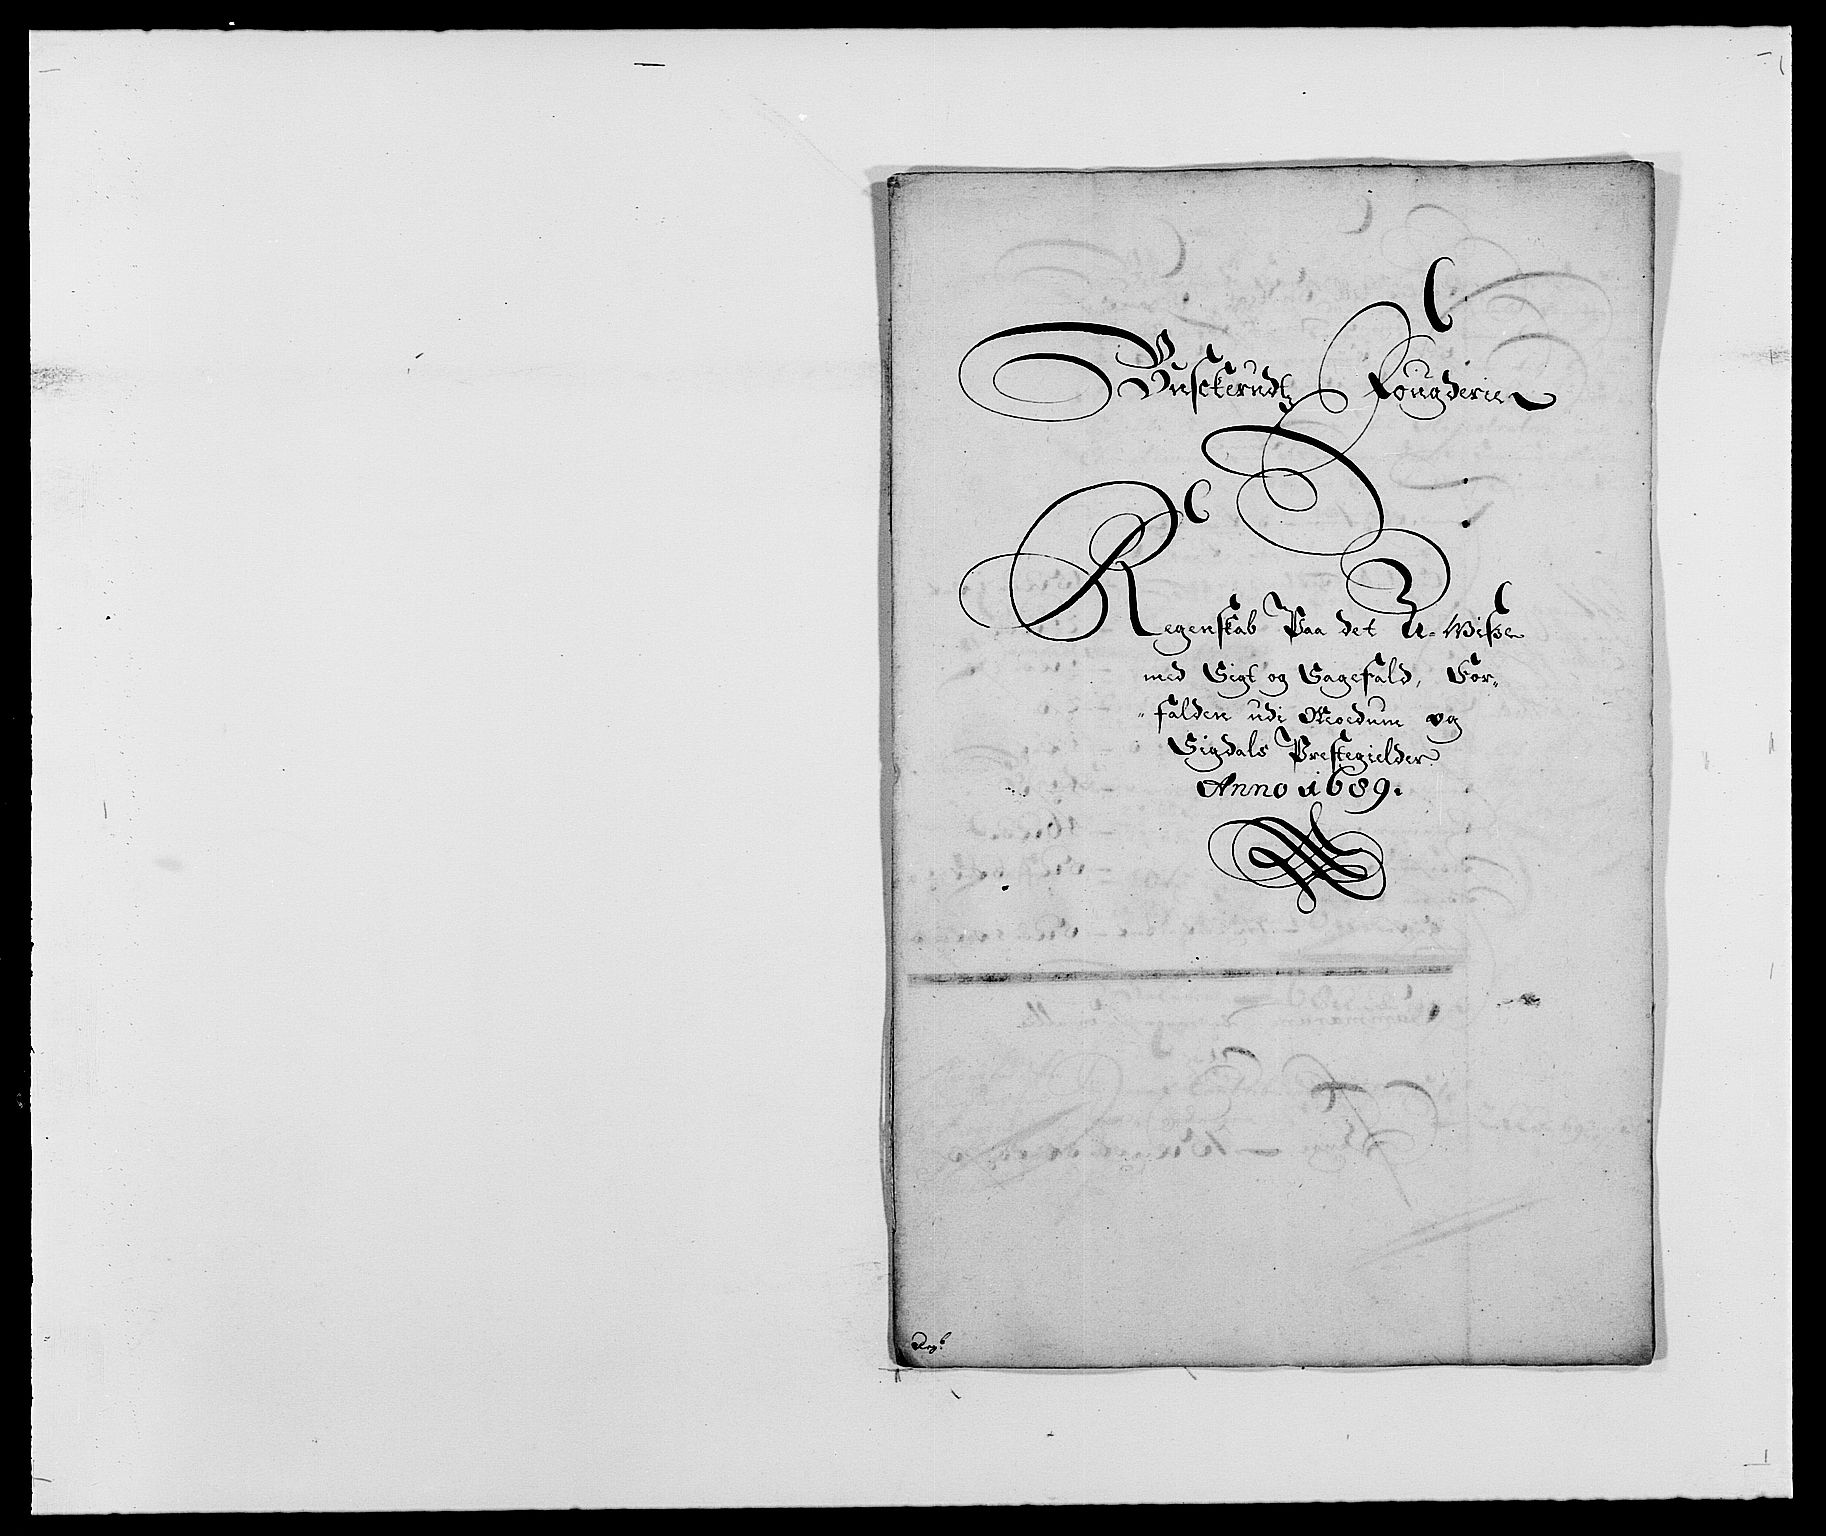 Buskerudtz Fougderie
Regenskab Paa det U-Wisse
med Sigt og Sagefald, For-
falden udi Moedum og
Sigdals Prestegielder
Anno 1689.